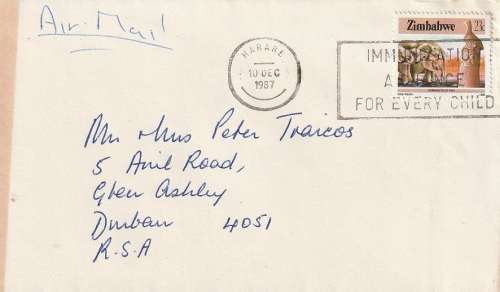 Air Mail
HARARE
10 DEC
1987
Zimbabwe 23c
IMMUNIZATION
A CHANCE
FOR EVERY CHILD
Mr & Mrs Peter Traicos
5 Avil Road,
Glen Ashley
Durban 4051
R.S.A